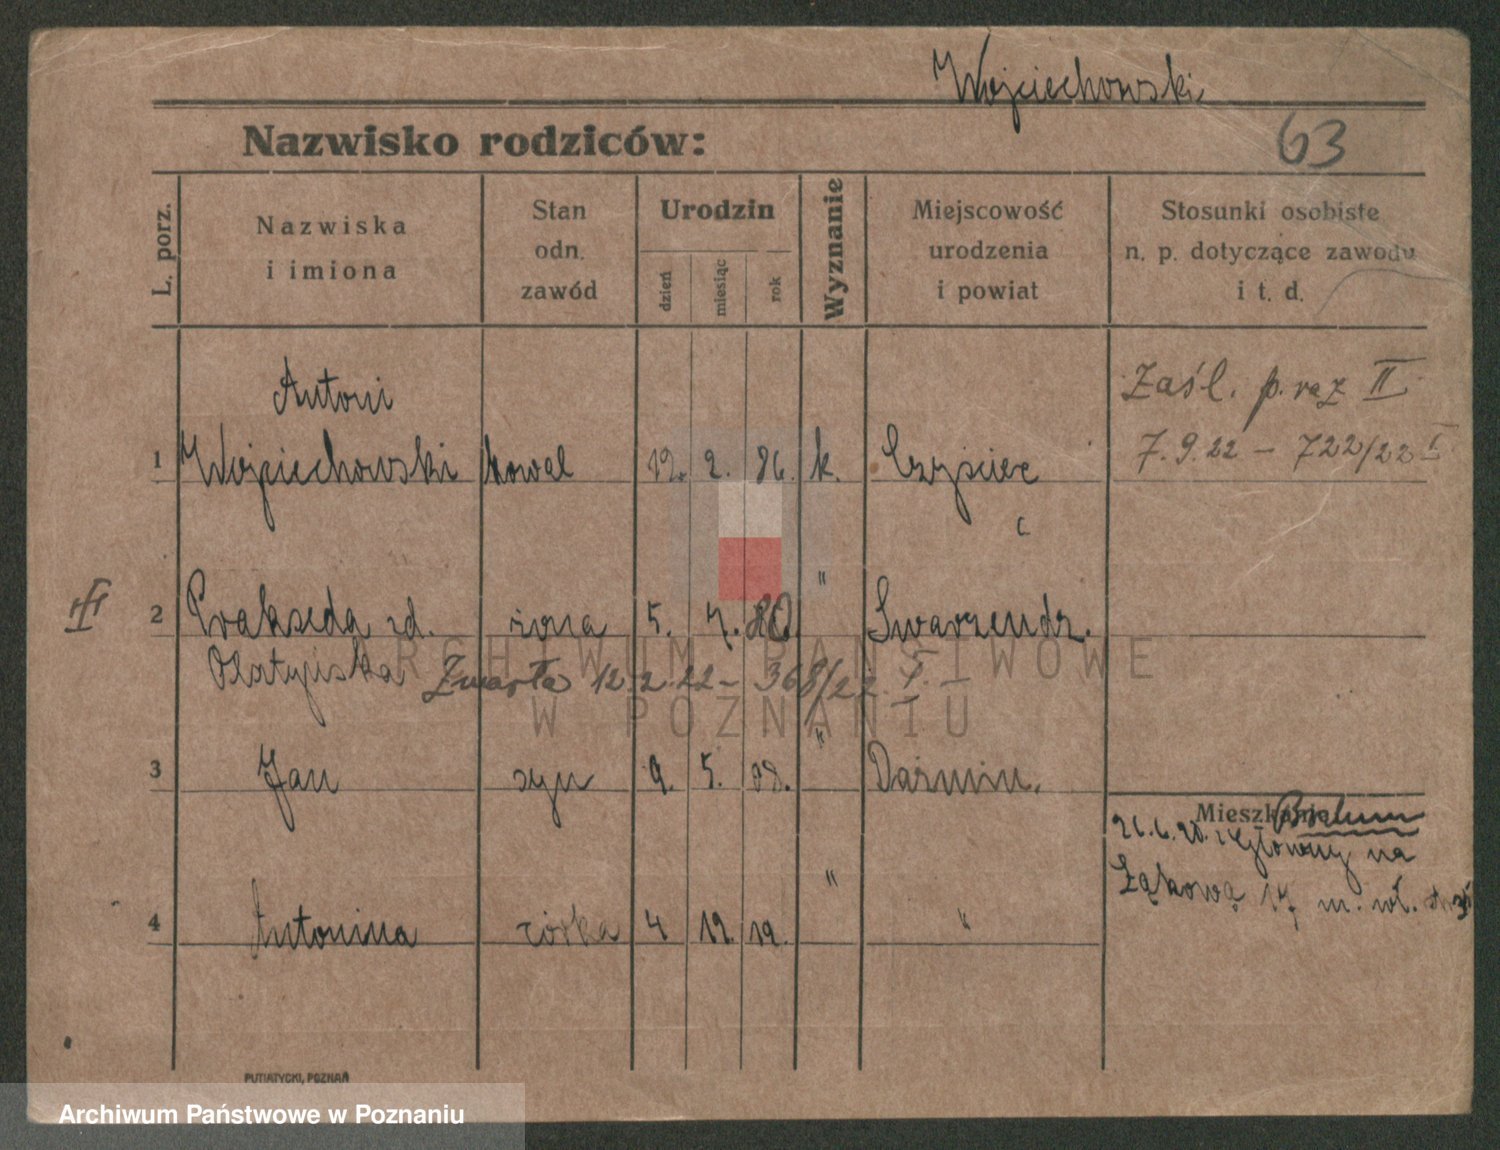 Wojciechowski
Nazwisko rodziców:
63
L. porz.
Nazwiska
i imiona
Stan
odn.
zawód
Urodzin
dzień
miesiąc
rok
Wyznanie
Miejscowość
urodzenia
i powiat
Stosunki osobiste
n. p. dotyczące zawodu
i t. d.
Antoni
Zaśl. p. raz II
1 Wojciechowski kowal 12. 2. 86. k. Czyściec
7.9.22 – 722/22 I
II 2 Prakseda zd. żona 5. 7. 80. " Swarzendz.
Zmarła 12.2.22 – 368/22 I. –
ARCHIWUM PAŃSTWOWE
W POZNANIU
3 Jan syn 9. 5. 08. "
Mieszkanie
26.6.20. z Główny na
Łąkową 17 m. wł.
4 Antonina córka 4 12. 19. " "
PUTIATYCKI, POZNAŃ
Archiwum Państwowe w Poznaniu